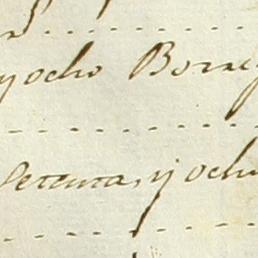 y ocho Borre
Setenta, y och